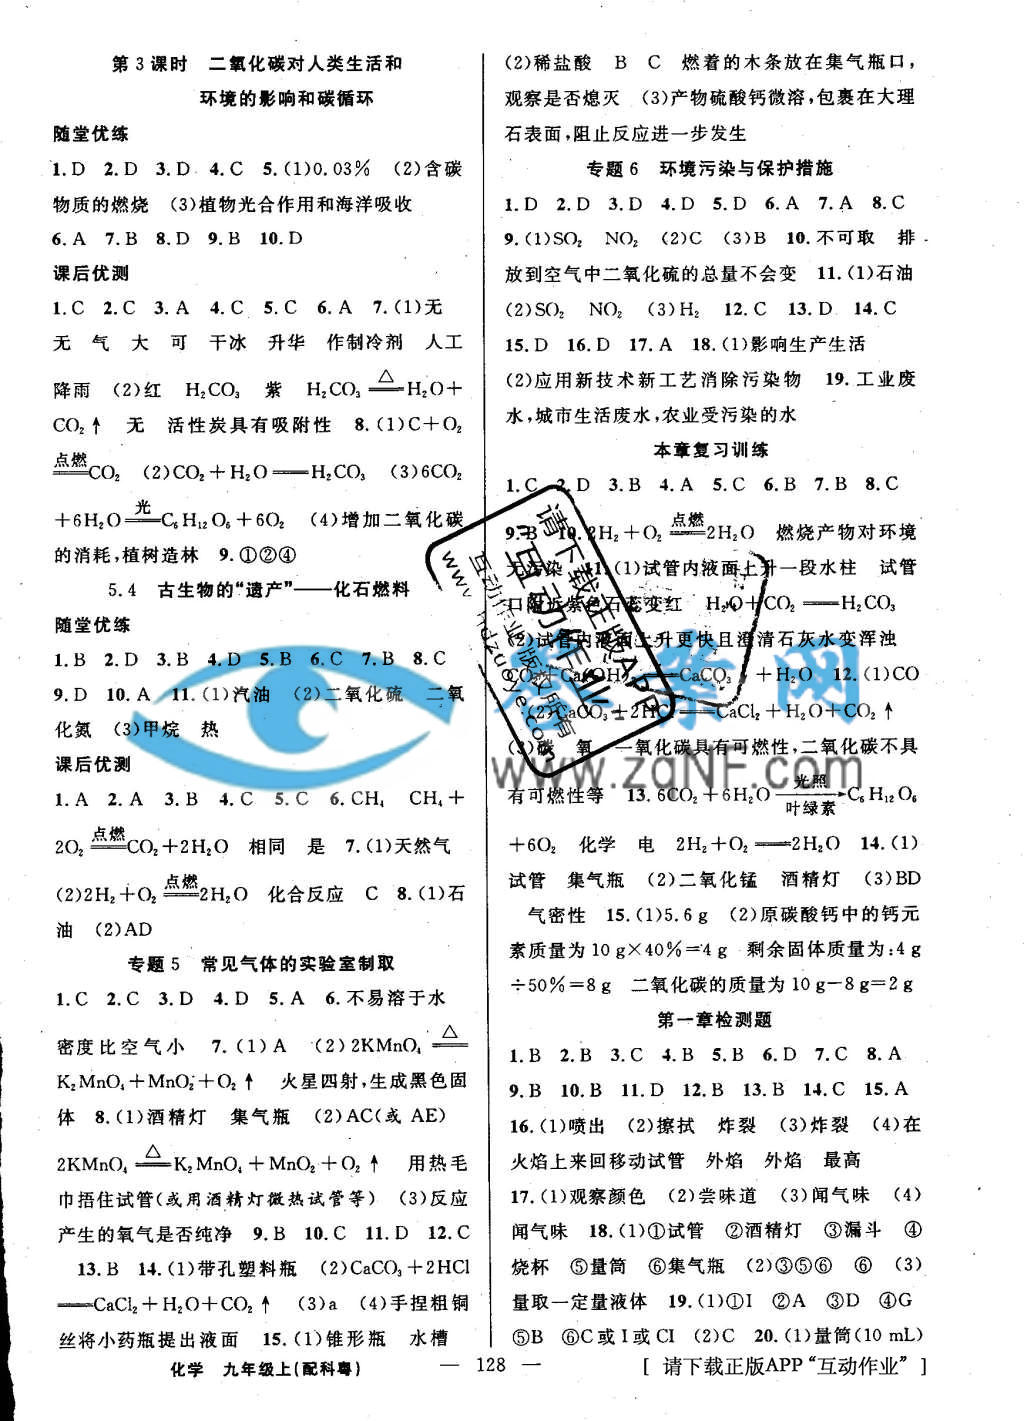 第3课时 二氧化碳对人类生活和
环境的影响和碳循环
随堂优练
1.D 2.D 3.D 4.C 5.(1)0.03% (2)含碳
物质的燃烧 (3)植物光合作用和海洋吸收
6.A 7.B 8.D 9.B 10.D
课后优测
1.C 2.C 3.A 4.C 5.C 6.A 7.(1)无
无 气 大 可 干冰 升华 作制冷剂 人工
降雨 (2)红 H₂CO₃ 紫 H₂CO₃ =△= H₂O+
CO₂↑ 无 活性炭具有吸附性 8.(1)C+O₂
=点燃= CO₂ (2)CO₂+H₂O══H₂CO₃ (3)6CO₂
+6H₂O =光= C₆H₁₂O₆+6O₂ (4)增加二氧化碳
的消耗,植树造林 9.①②④
5.4 古生物的“遗产”——化石燃料
随堂优练
1.B 2.D 3.B 4.D 5.B 6.C 7.B 8.C
9.D 10.A 11.(1)汽油 (2)二氧化硫 二氧
化氮 (3)甲烷 热
课后优测
1.A 2.A 3.B 4.C 5.C 6.CH₄ CH₄+
2O₂ =点燃= CO₂+2H₂O 相同 是 7.(1)天然气
(2)2H₂+O₂ =点燃= 2H₂O 化合反应 C 8.(1)石
油 (2)AD
专题5 常见气体的实验室制取
1.C 2.C 3.D 4.D 5.A 6.不易溶于水
密度比空气小 7.(1)A (2)2KMnO₄ =△=
K₂MnO₄+MnO₂+O₂↑ 火星四射,生成黑色固
体 8.(1)酒精灯 集气瓶 (2)AC(或 AE)
2KMnO₄ =△= K₂MnO₄+MnO₂+O₂↑ 用热毛
巾捂住试管(或用酒精灯微热试管等) (3)反应
产生的氧气是否纯净 9.B 10.C 11.D 12.C
13.B 14.(1)带孔塑料瓶 (2)CaCO₃+2HCl
══CaCl₂+H₂O+CO₂↑ (3)a (4)手捏粗铜
丝将小药瓶提出液面 15.(1)锥形瓶 水槽
(2)稀盐酸 B C 燃着的木条放在集气瓶口,
观察是否熄灭 (3)产物硫酸钙微溶,包裹在大理
石表面,阻止反应进一步发生
专题6 环境污染与保护措施
1.D 2.D 3.D 4.D 5.D 6.A 7.A 8.C
9.(1)SO₂ NO₂ (2)C (3)B 10.不可取 排
放到空气中二氧化硫的总量不会变 11.(1)石油
(2)SO₂ NO₂ (3)H₂ 12.C 13.D 14.C
15.D 16.D 17.A 18.(1)影响生产生活
(2)应用新技术新工艺消除污染物 19.工业废
水,城市生活废水,农业受污染的水
本章复习训练
1.C 2.D 3.B 4.A 5.C 6.B 7.B 8.C
9.B 10.2H₂+O₂ =点燃= 2H₂O 燃烧产物对环境
无污染 11.(1)试管内液面上升一段水柱 试管
口附近紫色石蕊变红 H₂O+CO₂══H₂CO₃
(2)试管内液面上升更快且澄清石灰水变浑浊
CO₂+Ca(OH)₂══CaCO₃ +H₂O 12.(1)CO
(2)CaCO₃+2HCl══CaCl₂+H₂O+CO₂↑
(3)碳 氧 一氧化碳具有可燃性,二氧化碳不具
有可燃性等 13.6CO₂+6H₂O 光照/叶绿素→ C₆H₁₂O₆
+6O₂ 化学 电 2H₂+O₂══2H₂O 14.(1)
试管 集气瓶 (2)二氧化锰 酒精灯 (3)BD
气密性 15.(1)5.6 g (2)原碳酸钙中的钙元
素质量为10 g×40%=4 g 剩余固体质量为:4 g
÷50%=8 g 二氧化碳的质量为10 g-8 g=2 g
第一章检测题
1.B 2.B 3.C 4.B 5.B 6.D 7.C 8.A
9.B 10.B 11.B 12.B 13.B 14.C 15.A
16.(1)喷出 (2)擦拭 炸裂 (3)炸裂 (4)在
火焰上来回移动试管 外焰 外焰 最高
17.(1)观察颜色 (2)尝味道 (3)闻气味 (4)
闻气味 18.(1)①试管 ②酒精灯 ③漏斗 ④
烧杯 ⑤量筒 ⑥集气瓶 (2)③⑤⑥ ⑥ (3)
量取一定量液体 19.(1)①I ②A ③D ④G
⑤B ⑥C或I或CI (2)C 20.(1)量筒(10 mL)
请下载正版APP
“互动作业”
互动作业 版权所有
www.zqNF.com
化学 九年级上(配科粤)
— 128 —
[ 请下载正版APP“互动作业” ]